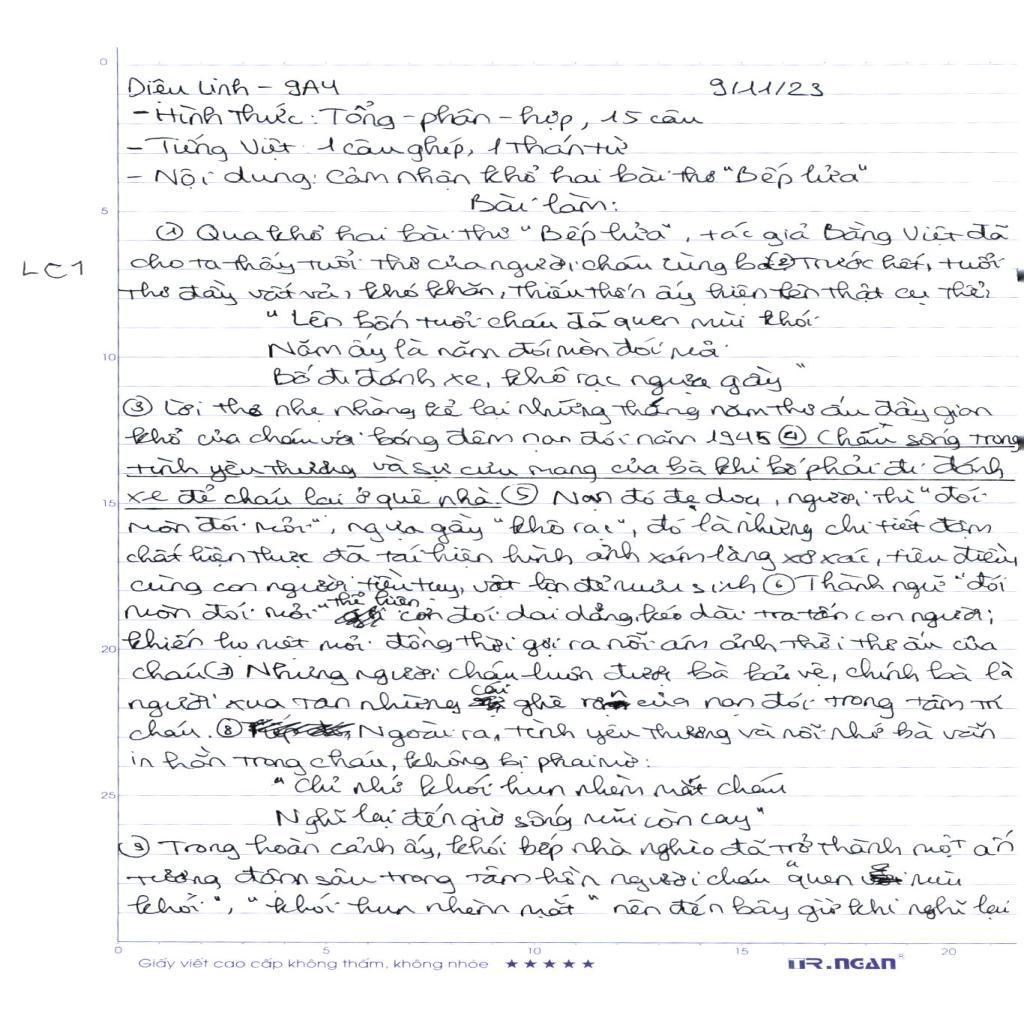 0
Diệu Linh - 9A4 9/11/23
- Hình thức: Tổng - phân - hợp, 15 câu
- Tiếng Việt: 1 câu ghép, 1 thán từ
- Nội dung: Cảm nhận khổ hai bài thơ "Bếp lửa"
5 Bài làm:
① Qua khổ hai bài thơ "Bếp lửa", tác giả Bằng Việt đã
LC1 cho ta thấy tuổi thơ của người cháu cùng bà ② Trước hết, tuổi
thơ đầy vất vả, khó khăn, thiếu thốn ấy hiện lên thật cụ thể:
"Lên bốn tuổi cháu đã quen mùi khói
10 Năm ấy là năm đói mòn đói mỏi
Bố đi đánh xe, khô rạc ngựa gầy"
③ Lời thơ nhẹ nhàng kể lại những tháng năm thơ ấu đầy gian
khổ của cháu với bóng đêm nạn đói năm 1945 ④ Cháu sống trong
tình yêu thương và sự cưu mang của bà khi bố phải đi đánh
15 xe để cháu lại ở quê nhà ⑤ Nạn đó đe dọa, người thì "đói
mòn đói mỏi", ngựa gầy "khô rạc", đó là những chi tiết đậm
chất hiện thực đã tái hiện hình ảnh xóm làng xơ xác, tiêu điều,
cùng con người tiều tụy, vật lộn để mưu sinh ⑥ Thành ngữ "đói
mòn đói mỏi" thể hiện cơn đói dai dẳng, kéo dài tra tấn con người;
20 khiến họ mệt mỏi đồng thời gợi ra nỗi ám ảnh thời thơ ấu của
cháu ⑦ Nhưng người cháu luôn được bà bảo vệ, chính bà là
người xua tan những cái ghê rợn của nạn đói trong tâm trí
cháu. ⑧ Ngoài ra, tình yêu thương và nỗi nhớ bà vẫn
in hằn trong cháu, không bị phai mờ:
25 "Chỉ nhớ khói hun nhèm mắt cháu
Nghĩ lại đến giờ sống mũi còn cay"
⑨ Trong hoàn cảnh ấy, khói bếp nhà nghèo đã trở thành một ấn
tượng đậm sâu trong tâm hồn người cháu "quen mùi
khói", "khói hun nhèm mắt" nên đến bây giờ khi nghĩ lại
0 5 10 15 20
Giấy viết cao cấp không thấm, không nhòe ★★★★★ TR.NGAN®